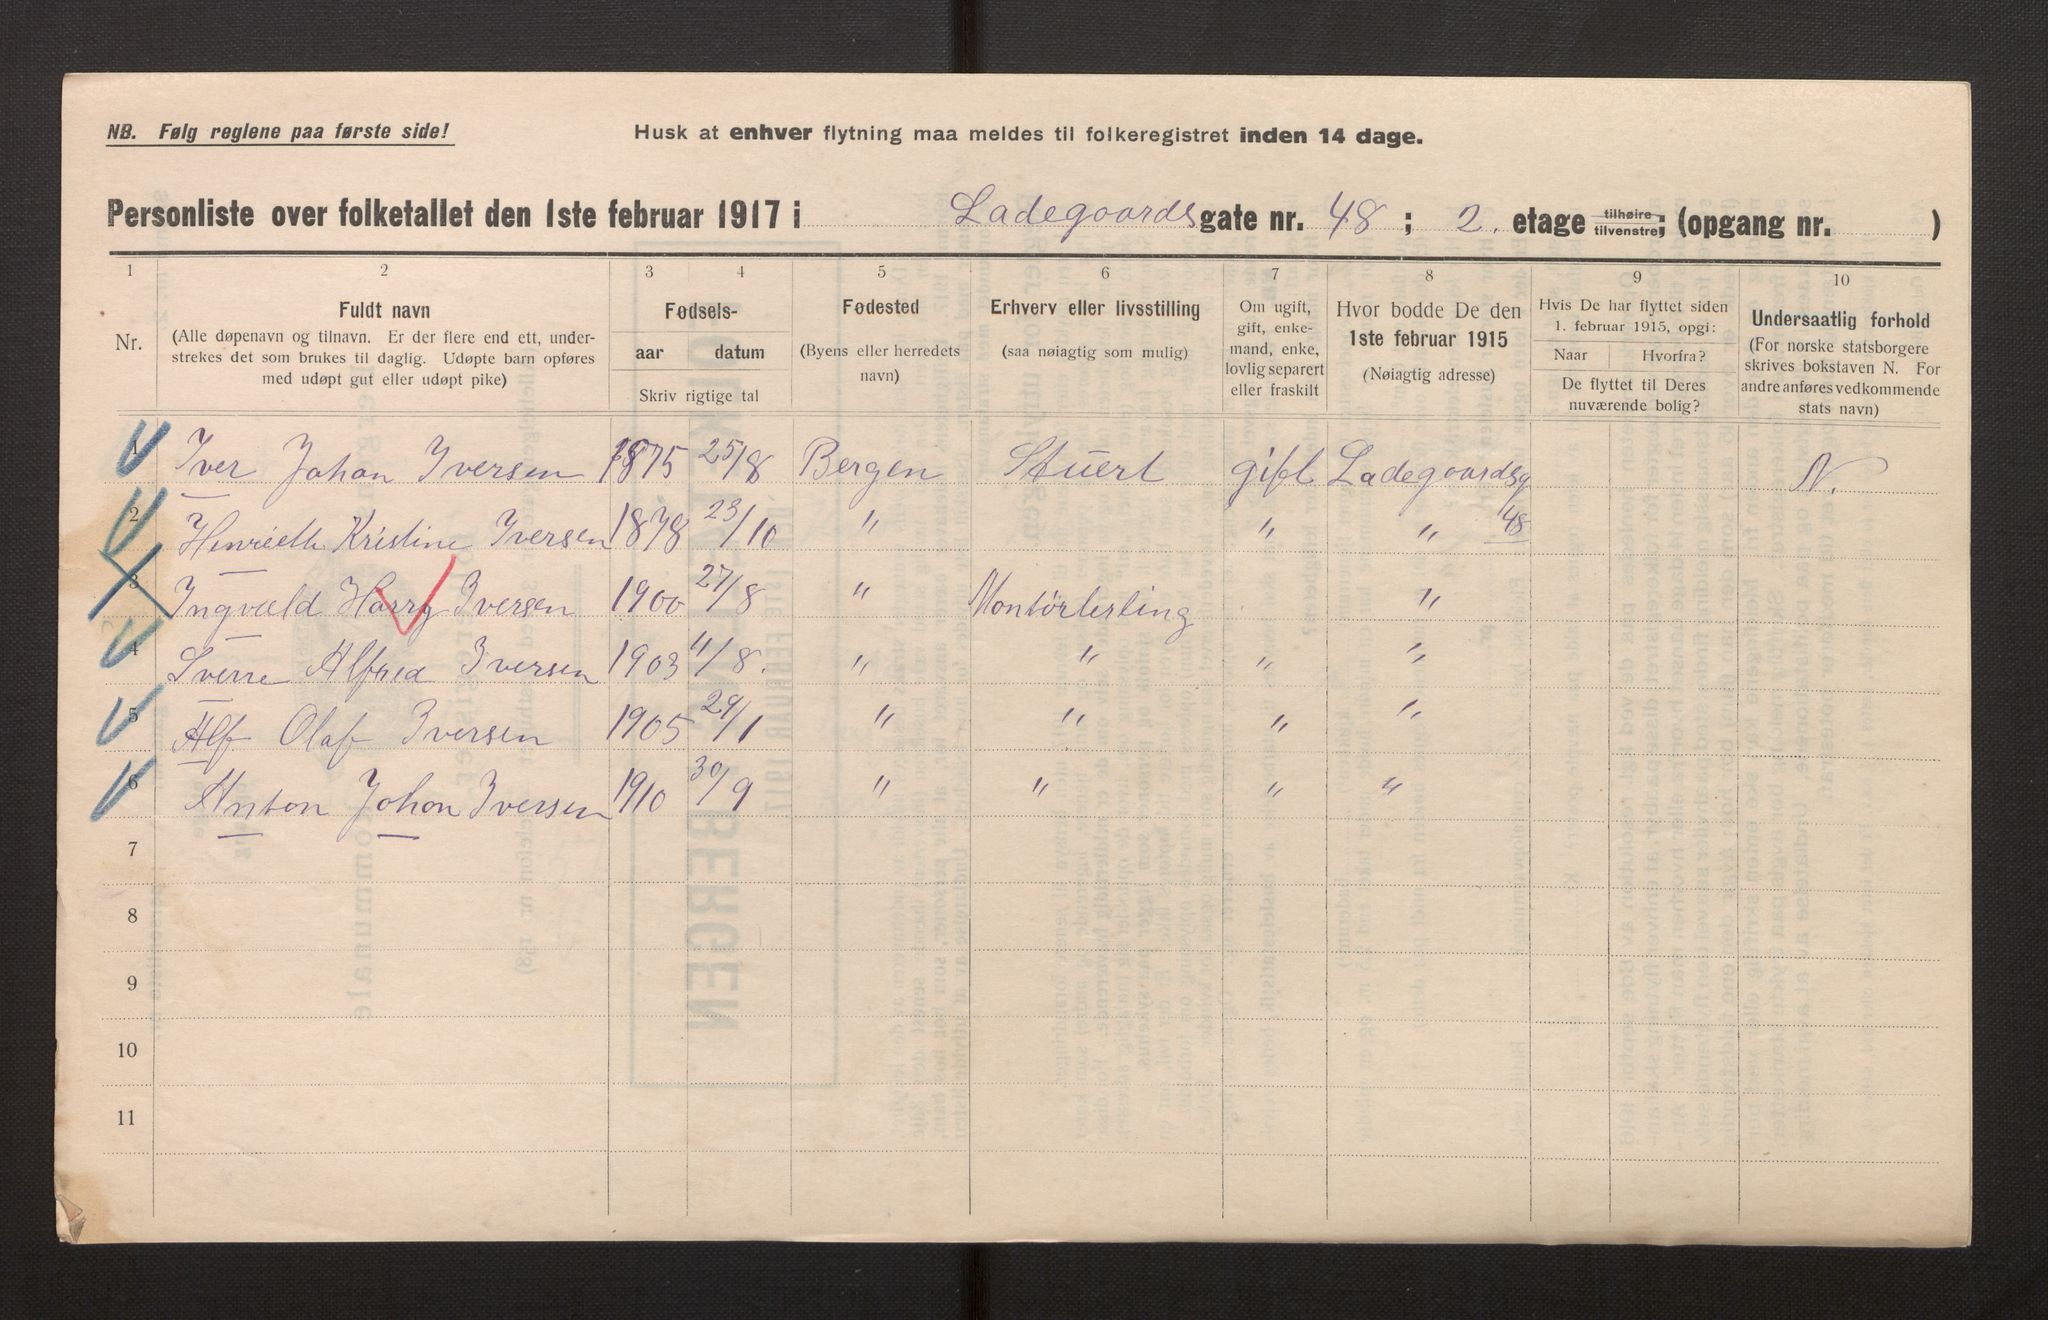 NB. Følg reglene paa første side!
Husk at enhver flytning maa meldes til folkeregistret inden 14 dage.
Personliste over folketallet den 1ste februar 1917 i Ladegaardsgate nr. 48 ; 2. etage tilhøire/tilvenstre; (opgang nr. )
1 2 3 4 5 6 7 8 9 10
Nr.
Fuldt navn
(Alle døpenavn og tilnavn. Er der flere end ett, under-
strekes det som brukes til daglig. Udøpte barn opføres
med udøpt gut eller udøpt pike)
Fødsels-
aar datum
Skriv rigtige tal
Fødested
(Byens eller herredets
navn)
Erhverv eller livsstilling
(saa nøiagtig som mulig)
Om ugift,
gift, enke-
mand, enke,
lovlig separert
eller fraskilt
Hvor bodde De den
1ste februar 1915
(Nøiagtig adresse)
Hvis De har flyttet siden
1. februar 1915, opgi:
Naar Hvorfra?
De flyttet til Deres
nuværende bolig?
Undersaatlig forhold
(For norske statsborgere
skrives bokstaven N. For
andre anføres vedkommende
stats navn)
1 Iver Johan Iversen 1875 25/8 Bergen Stuert gift Ladegaardsg N.
2 Henriette Kristine Iversen 1878 23/10 " " " 48
3 Ingvald Harry Iversen 1900 27/8 " Montørlerling "
4 Sverre Alfred Iversen 1903 11/8. " " " "
5 Alf Olaf Iversen 1905 29/1 " " " "
6 Anton Johan Iversen 1910 30/9 " " " "
7
8
9
10
11